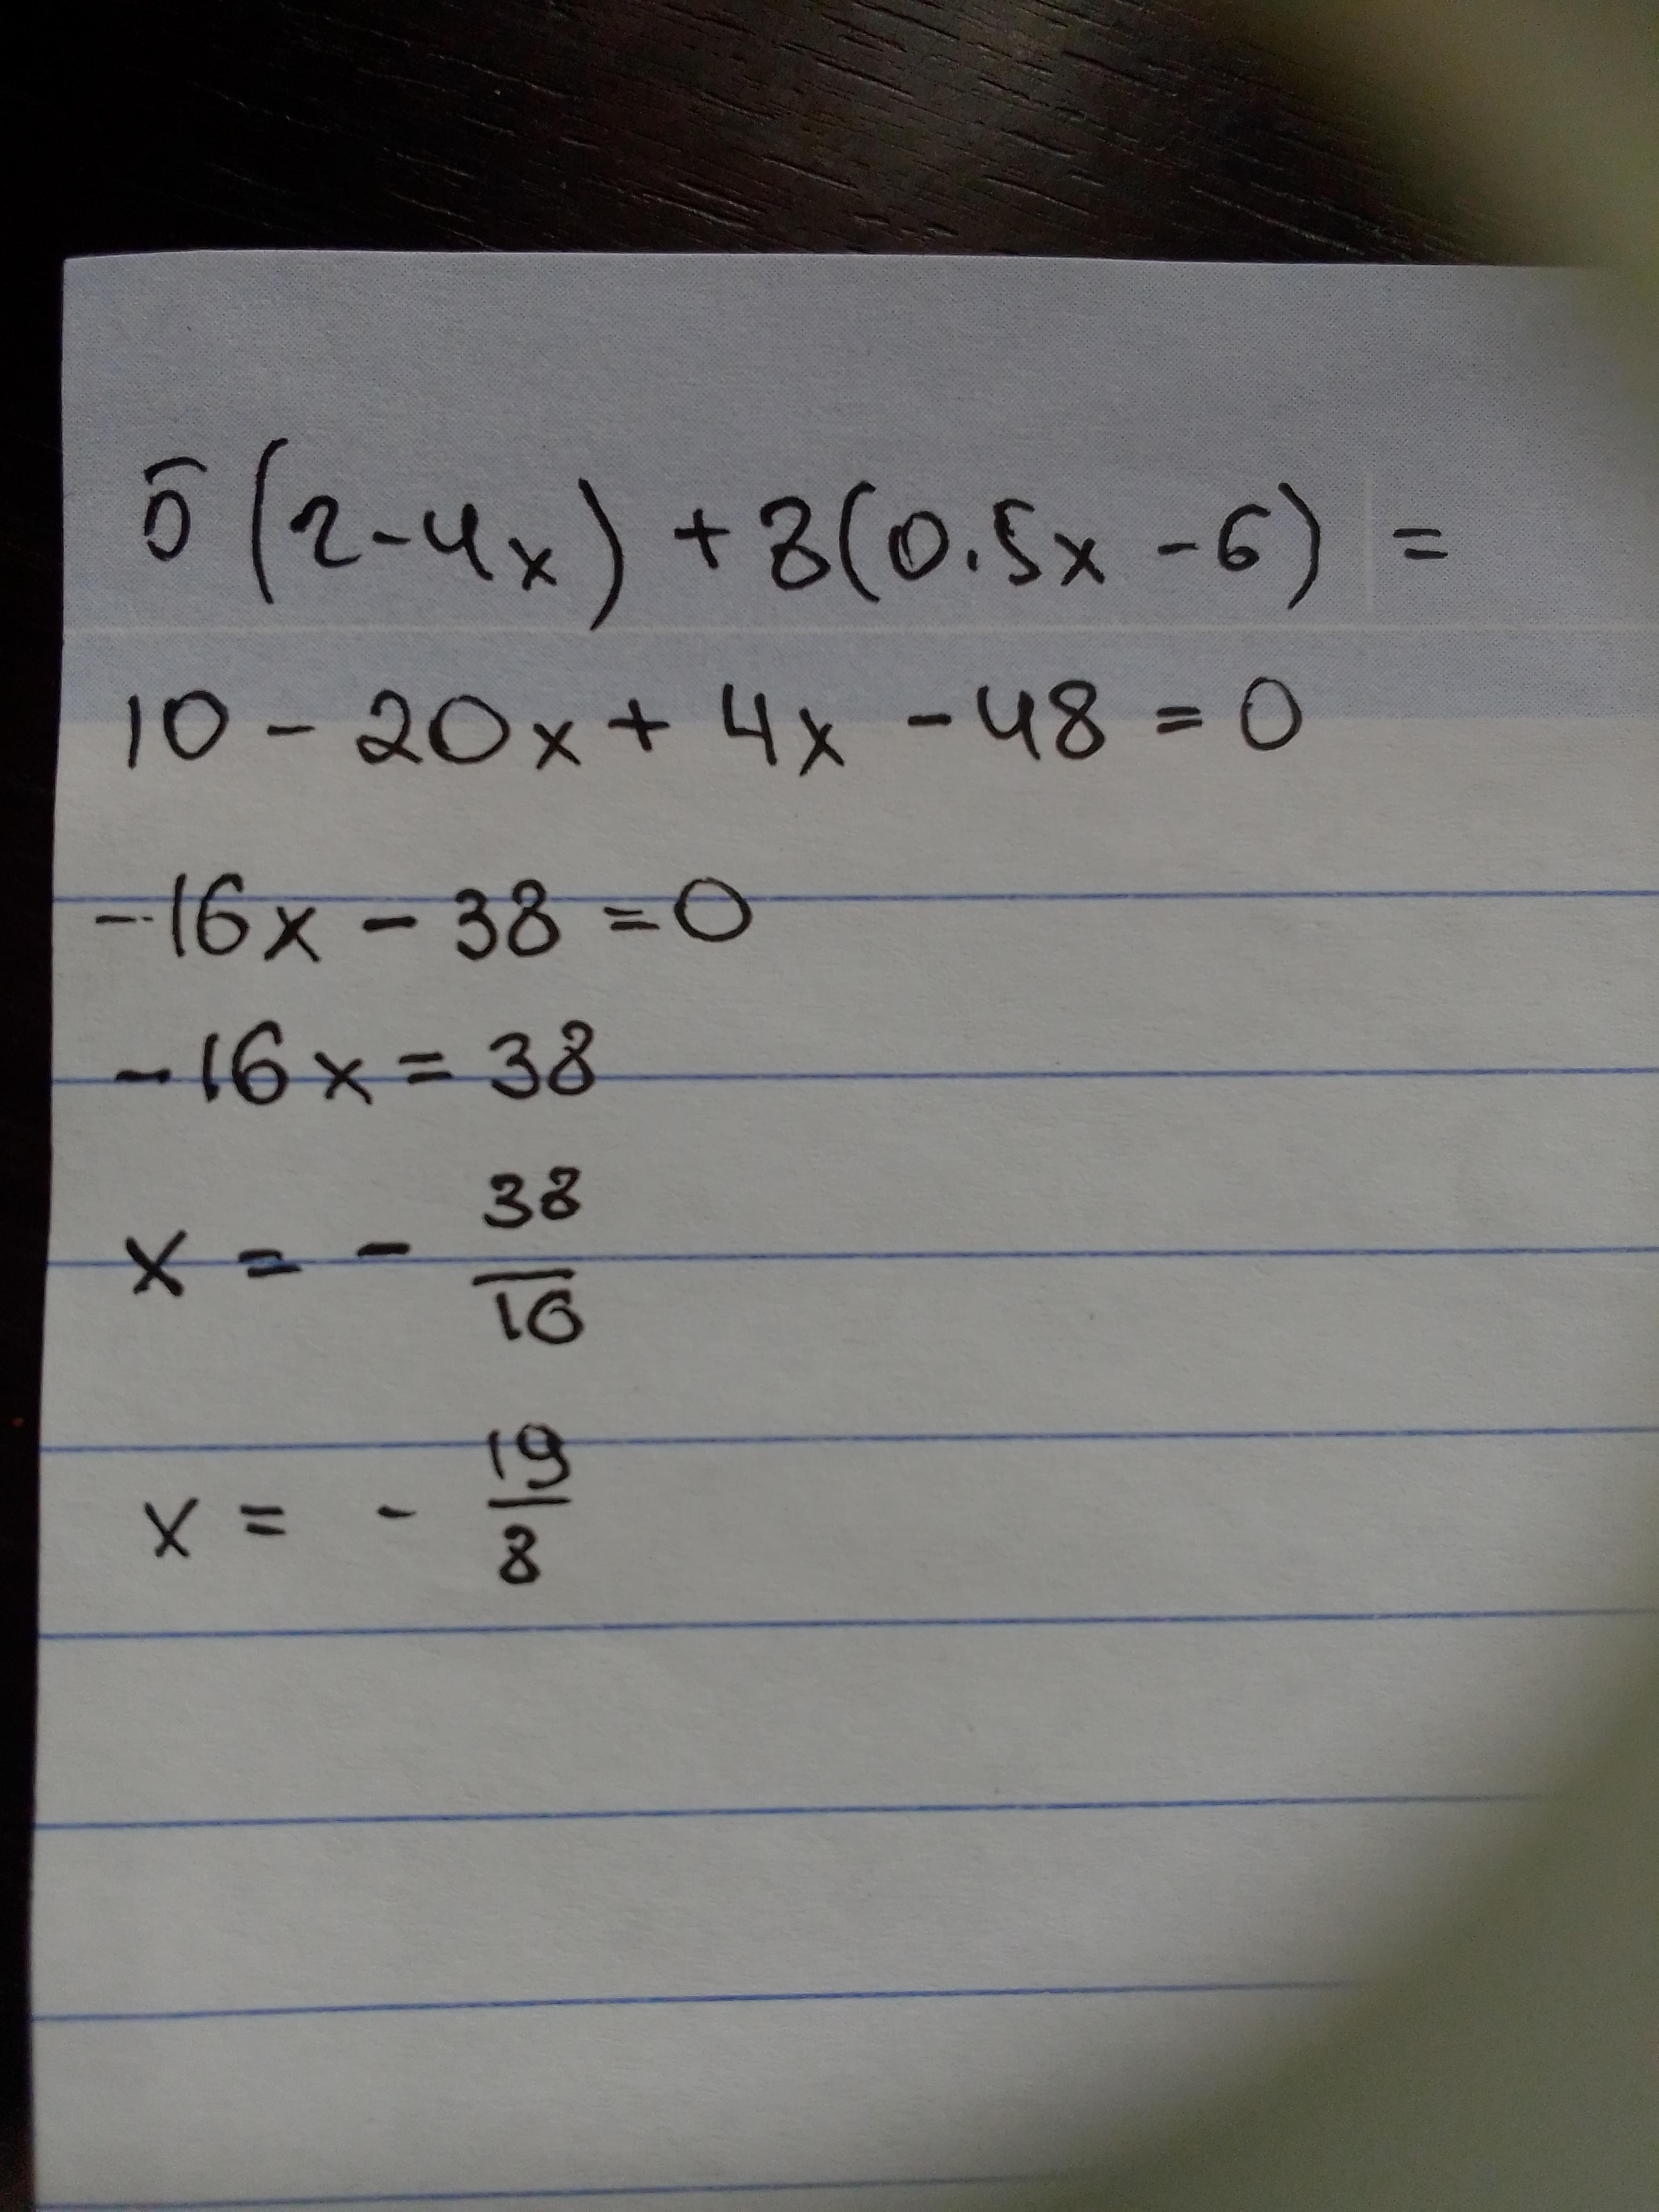 5(2-4x) + 8(0.5x - 6) =
10 - 20x + 4x - 48 = 0
-16x - 38 = 0
-16x = 38
x = - 38/16
x = - 19/8